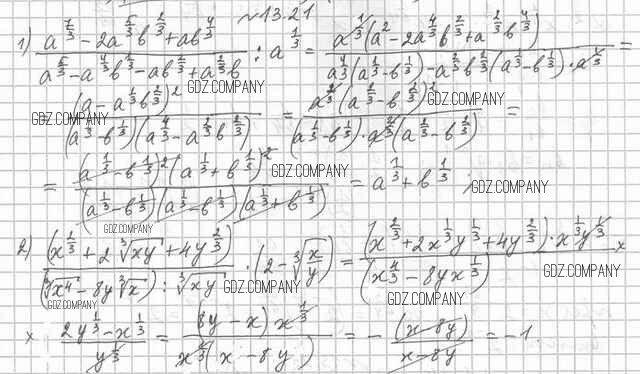 ~13.21
1) \frac{a^{\frac{7}{3}} - 2a^{\frac{5}{3}}b^{\frac{2}{3}} + ab^{\frac{4}{3}}}{a^{\frac{5}{3}} - a^{\frac{4}{3}}b^{\frac{1}{3}} - ab^{\frac{2}{3}} + a^{\frac{2}{3}}b} : a^{\frac{1}{3}} = \frac{a^{\frac{1}{3}}(a^2 - 2a^{\frac{4}{3}}b^{\frac{2}{3}} + a^{\frac{2}{3}}b^{\frac{4}{3}})}{a^{\frac{4}{3}}(a^{\frac{1}{3}} - b^{\frac{1}{3}}) - a^{\frac{2}{3}}b^{\frac{2}{3}}(a^{\frac{1}{3}} - b^{\frac{1}{3}}) \cdot a^{\frac{1}{3}}} =
GDZ.COMPANY
GDZ.COMPANY
GDZ.COMPANY
\frac{(a - a^{\frac{1}{3}}b^{\frac{2}{3}})^2}{(a^{\frac{1}{3}} - b^{\frac{1}{3}})(a^{\frac{4}{3}} - a^{\frac{2}{3}}b^{\frac{2}{3}})} = \frac{a^{\frac{2}{3}}(a^{\frac{2}{3}} - b^{\frac{2}{3}})^2}{(a^{\frac{1}{3}} - b^{\frac{1}{3}}) \cdot a^{\frac{2}{3}}(a^{\frac{2}{3}} - b^{\frac{2}{3}})} =
= \frac{(a^{\frac{1}{3}} - b^{\frac{1}{3}})^2(a^{\frac{1}{3}} + b^{\frac{1}{3}})^2}{(a^{\frac{1}{3}} - b^{\frac{1}{3}})(a^{\frac{1}{3}} - b^{\frac{1}{3}})(a^{\frac{1}{3}} + b^{\frac{1}{3}})} = a^{\frac{1}{3}} + b^{\frac{1}{3}};
GDZ.COMPANY
GDZ.COMPANY
GDZ.COMPANY
2) \frac{(x^{\frac{2}{3}} + 2\sqrt[3]{xy} + 4y^{\frac{2}{3}})}{(\sqrt[3]{x^4} - 8y\sqrt[3]{x}) : \sqrt[3]{xy}} \cdot (2 - \sqrt[3]{\frac{x}{y}}) = \frac{(x^{\frac{2}{3}} + 2x^{\frac{1}{3}}y^{\frac{1}{3}} + 4y^{\frac{2}{3}}) \cdot x^{\frac{1}{3}}y^{\frac{1}{3}}}{(x^{\frac{4}{3}} - 8yx^{\frac{1}{3}})} ×
GDZ.COMPANY
GDZ.COMPANY
GDZ.COMPANY
GDZ.COMPANY
× \frac{2y^{\frac{1}{3}} - x^{\frac{1}{3}}}{y^{\frac{1}{3}}} = \frac{(8y - x)x^{\frac{1}{3}}}{x^{\frac{1}{3}}(x - 8y)} = -\frac{(x - 8y)}{x - 8y} = -1.